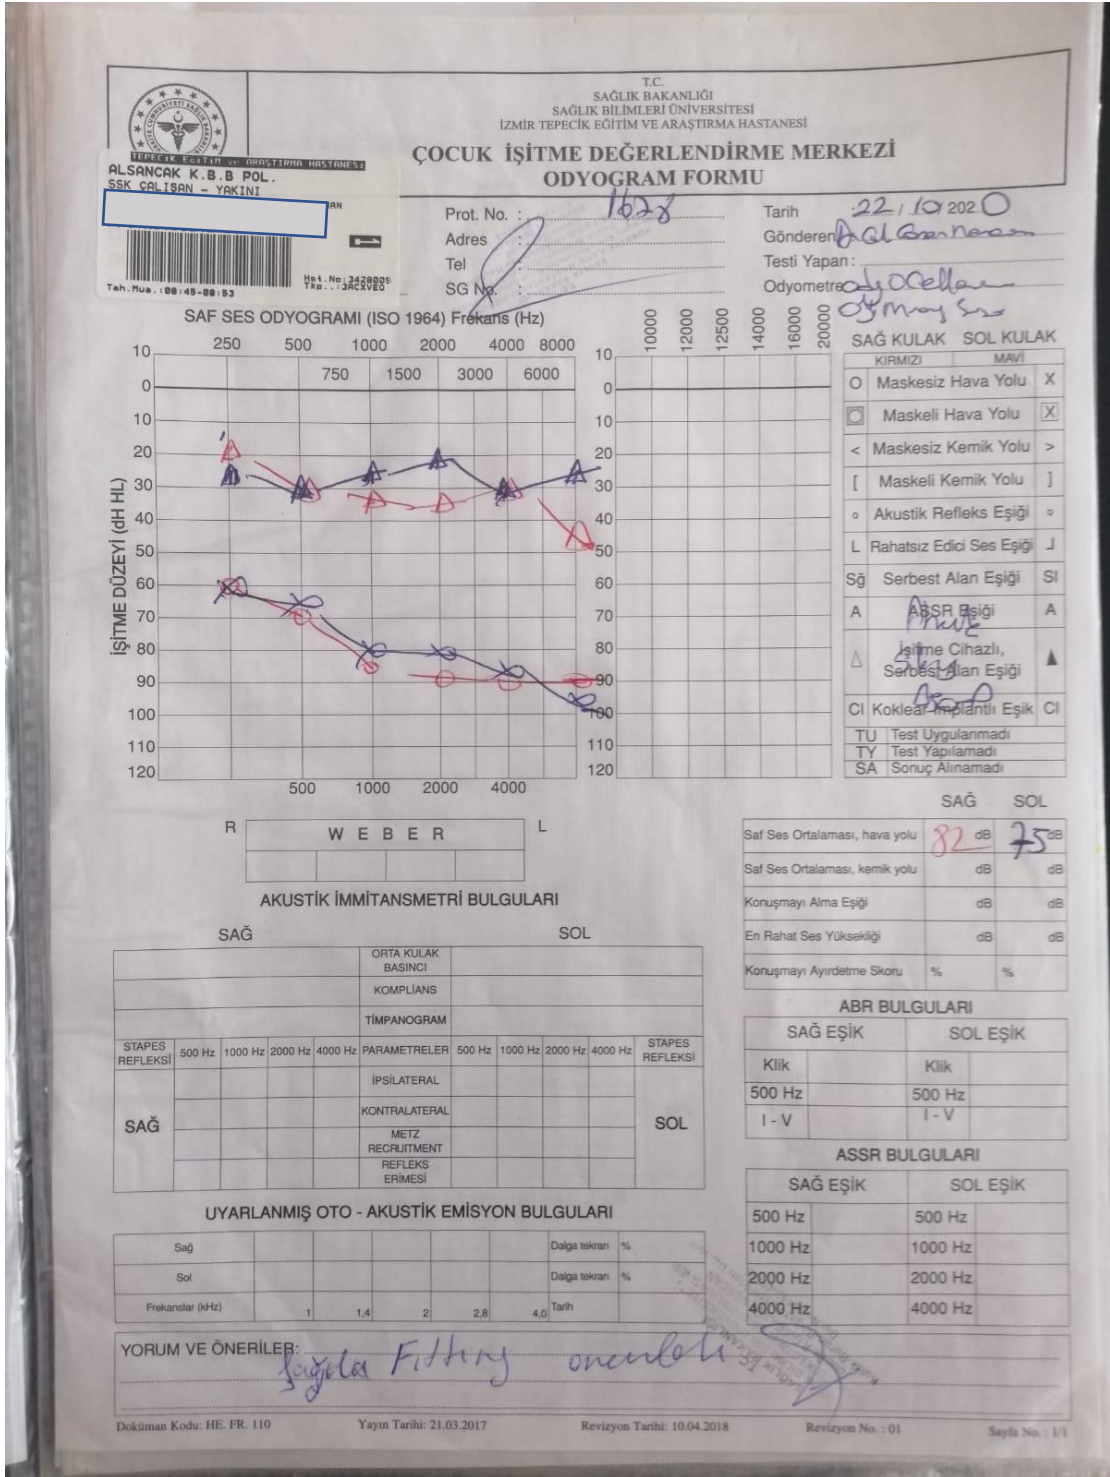 T.C.
SAĞLIK BAKANLIĞI
SAĞLIK BİLİMLERİ ÜNİVERSİTESİ
İZMİR TEPECİK EĞİTİM VE ARAŞTIRMA HASTANESİ
ÇOCUK İŞİTME DEĞERLENDİRME MERKEZİ
ODYOGRAM FORMU
TEPECİK EĞİTİM ve ARAŞTIRMA HASTANESİ
ALSANCAK K.B.B POL.
SSK ÇALIŞAN - YAKINI
AN
Hst.No:3420009
Tkp.:3ACXVEO
Tah.Mua.:08:45-08:53
Prot. No. : 1628
Adres :
Tel :
SG No. :
Tarih : 22/10/2020
Gönderen
Testi Yapan :
Odyometre
SAF SES ODYOGRAMI (ISO 1964) Frekans (Hz)
250 500 1000 2000 4000 8000
750 1500 3000 6000
10000 12000 12500 14000 16000 20000
İŞİTME DÜZEYİ (dH HL)
10 10
0 0
10 10
20 20
30 30
40 40
50 50
60 60
70 70
80 80
90 90
100 100
110 110
120 120
500 1000 2000 4000
SAĞ KULAK SOL KULAK
KIRMIZI MAVİ
O Maskesiz Hava Yolu X
O Maskeli Hava Yolu X
< Maskesiz Kemik Yolu >
[ Maskeli Kemik Yolu ]
Akustik Refleks Eşiği
L Rahatsız Edici Ses Eşiği ┘
Sğ Serbest Alan Eşiği Sl
A ASSR Eşiği A
△ İşitme Cihazlı, Serbest Alan Eşiği ▲
CI Koklear İmplantlı Eşik CI
TU Test Uygulanmadı
TY Test Yapılamadı
SA Sonuç Alınamadı
R WEBER L
SAĞ SOL
Saf Ses Ortalaması, hava yolu 82 dB 75 dB
Saf Ses Ortalaması, kemik yolu dB dB
Konuşmayı Alma Eşiği dB dB
En Rahat Ses Yüksekliği dB dB
Konuşmayı Ayırdetme Skoru % %
AKUSTİK İMMİTANSMETRİ BULGULARI
SAĞ SOL
ORTA KULAK BASINCI
KOMPLİANS
TİMPANOGRAM
STAPES REFLEKSİ 500 Hz 1000 Hz 2000 Hz 4000 Hz PARAMETRELER 500 Hz 1000 Hz 2000 Hz 4000 Hz STAPES REFLEKSİ
SAĞ SOL
İPSİLATERAL
KONTRALATERAL
METZ RECRUITMENT
REFLEKS ERİMESİ
ABR BULGULARI
SAĞ EŞİK SOL EŞİK
Klik Klik
500 Hz 500 Hz
I - V I - V
ASSR BULGULARI
SAĞ EŞİK SOL EŞİK
500 Hz 500 Hz
1000 Hz 1000 Hz
2000 Hz 2000 Hz
4000 Hz 4000 Hz
UYARLANMIŞ OTO - AKUSTİK EMİSYON BULGULARI
Sağ Dalga tekrarı %
Sol Dalga tekrarı %
Frekanslar (kHz) 1 1,4 2 2,8 4,0 Tarih
YORUM VE ÖNERİLER:
Sağda Fitting önerileri
Doküman Kodu: HE. FR. 110 Yayın Tarihi: 21.03.2017 Revizyon Tarihi: 10.04.2018 Revizyon No. : 01 Sayfa No. : 1/1